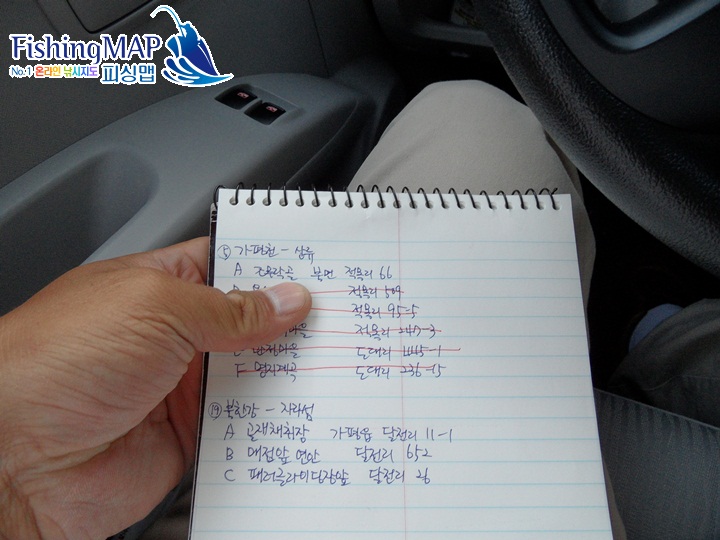 FishingMAP
No.1 온라인 낚시지도 피싱맵
⑤ 가평천 - 상류
A 조무락골 북면 적목리 66
적목리 509
적목리 95-5
마을 적목리 247-3
도대리 445-1
F 명지계곡 도대리 236-15
⑲ 북한강 - 자라섬
A 골재채취장 가평읍 달전리 11-1
B 매점앞 연안 달전리 652
C 패러글라이딩장앞 달전리 26